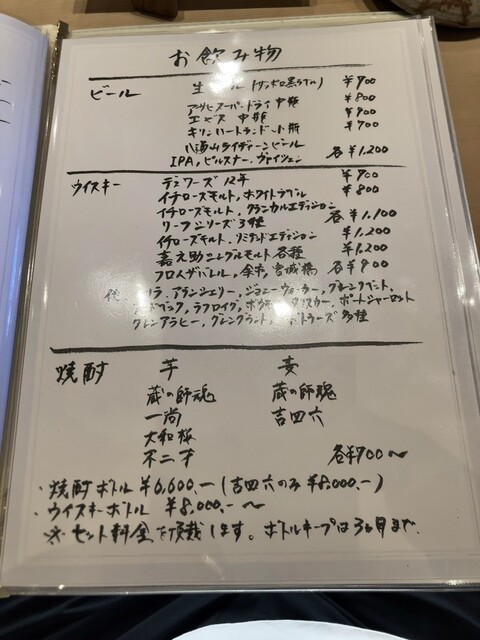 お飲み物
ビール 生ビール(サッポロ黒ラベル) ¥900
アサヒスーパードライ 中瓶 ¥800
エビス 中瓶 ¥900
キリンハートランド 小瓶 ¥700
八海山ライディーンビール
IPA, ピルスナー, ヴァイツェン 各¥1,200
ウイスキー デュワーズ 12年 ¥900
イチローズモルト, ホワイトラベル ¥800
イチローズモルト, クラシカルエディション
リーフシリーズ3種 各¥1,100
イチローズモルト, リミテッドエディション ¥1,200
嘉之助シングルモルト各種 ¥1,200
フロムザバレル, 余市, 宮城峡 各¥900
他, アランシェリー, ジョニーウォーカー, グレングラント,
ラフロイグ, タリスカー, ポートシャーロット
グレンアラヒー, グレングラント, 多種
焼酎 芋 麦
蔵の師魂 蔵の師魂
一尚 吉四六
大和桜
不二才 各¥700〜
・焼酎ボトル ¥6,600.—(吉四六のみ ¥8,000.—)
・ウイスキーボトル ¥8,000.—〜
・※セット料金を頂戴します。ボトルキープは3ヶ月まで.